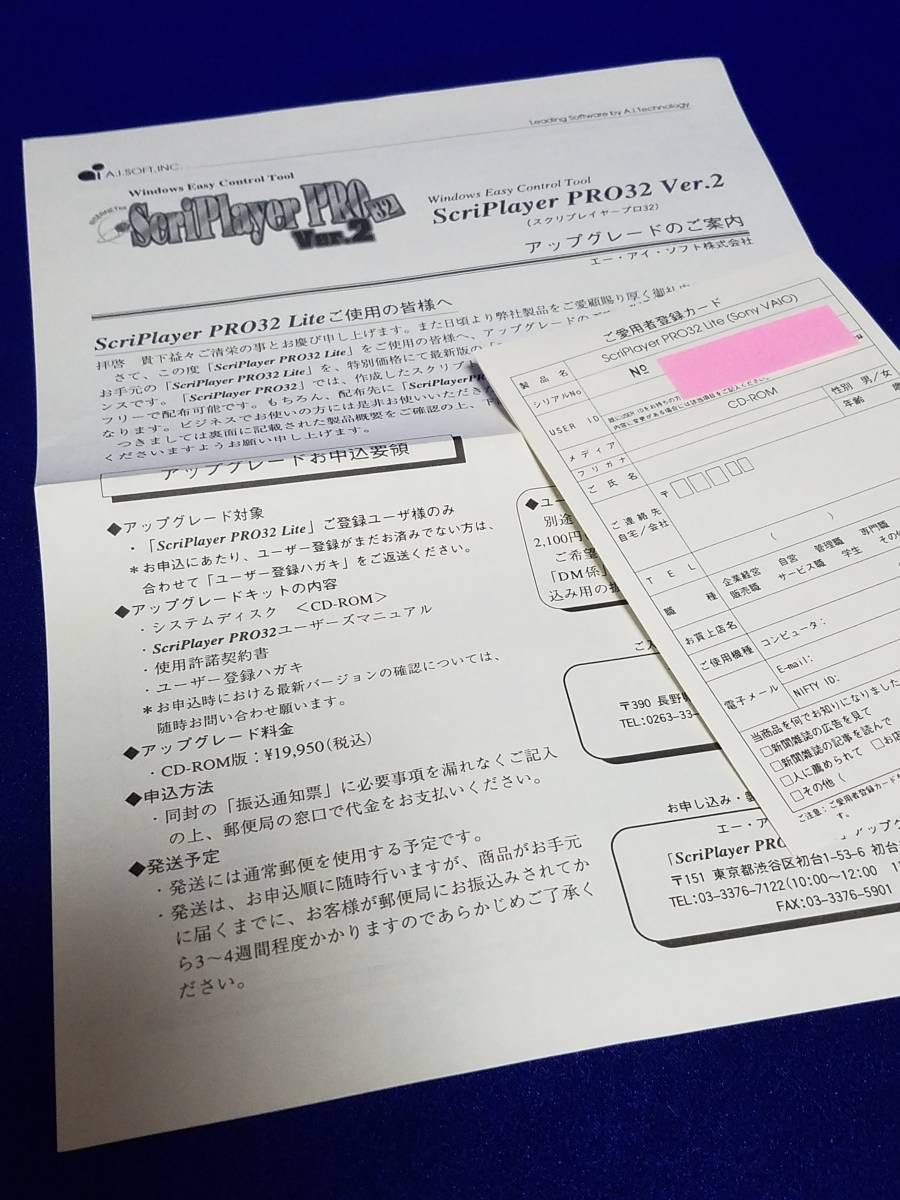 Leading Software by A.I.Technology
ai A.I.SOFT,INC.
Windows Easy Control Tool
ScriPlayer PRO32
Ver.2
Windows Easy Control Tool
ScriPlayer PRO32 Ver.2
(スクリプレイヤープロ32)
アップグレードのご案内
エー・アイ・ソフト株式会社
ScriPlayer PRO32 Liteご使用の皆様へ
拝啓 貴下益々ご清栄の事とお慶び申し上げます。また日頃より弊社製品をご愛顧賜り厚く御礼
さて、この度「ScriPlayer PRO32 Lite」をご使用の皆様へ、アップグレードのご
お手元の「ScriPlayer PRO32 Lite」を、特別価格にて最新版の「
ンスです。「ScriPlayer PRO32」では、作成したスクリプ
フリーで配布可能です。もちろん、配布先に「ScriPlayer
なります。ビジネスでお使いの方には是非お使いいただき
つきましては裏面に記載された製品概要をご確認の上、下
くださいますようお願い申し上げます。
アップグレードお申込要領
◆アップグレード対象
・「ScriPlayer PRO32 Lite」ご登録ユーザ様のみ
*お申込にあたり、ユーザー登録がまだお済みでない方は、
合わせて「ユーザー登録ハガキ」をご返送ください。
◆アップグレードキットの内容
・システムディスク <CD-ROM>
・ScriPlayer PRO32ユーザーズマニュアル
・使用許諾契約書
・ユーザー登録ハガキ
*お申込時における最新バージョンの確認については、
随時お問い合わせ願います。
◆アップグレード料金
・CD-ROM版:¥19,950(税込)
◆申込方法
・同封の「振込通知票」に必要事項を漏れなくご記入
の上、郵便局の窓口で代金をお支払いください。
◆発送予定
・発送には通常郵便を使用する予定です。
・発送は、お申込順に随時行いますが、商品がお手元
に届くまでに、お客様が郵便局にお振込みされてか
ら3~4週間程度かかりますのであらかじめご了承く
ださい。
◆ユー
別途
2,100円
ご希望
「DM係」
込み用の振
ご入
〒390 長野県
TEL:0263-33-
お申し込み・
エー・ア
「ScriPlayer PRO
アップグ
〒151 東京都渋谷区初台1-53-6 初台
TEL:03-3376-7122(10:00~12:00
FAX:03-3376-5901
ご愛用者登録カード
製品名 ScriPlayer PRO32 Lite (Sony VAIO)
シリアルNo №
USER ID 既にUSER IDをお持ちの方
内容に変更がある場合には該当項目をご記入ください。
メディア CD-ROM
フリガナ
ご氏名
性別 男/女
年齢 歳
ご連絡先
自宅/会社 〒
TEL ( )
職種 企業経営 自営 管理職 専門職
販売職 サービス職 学生 その他
お買上店名
ご使用機種 コンピュータ:
電子メール E-mail:
NIFTY ID:
当商品を何でお知りになりました
□新聞雑誌の広告を見て
□新聞雑誌の記事を読んで
□人に薦められて □お店
□その他(
ご注意:ご愛用者登録カード
す。